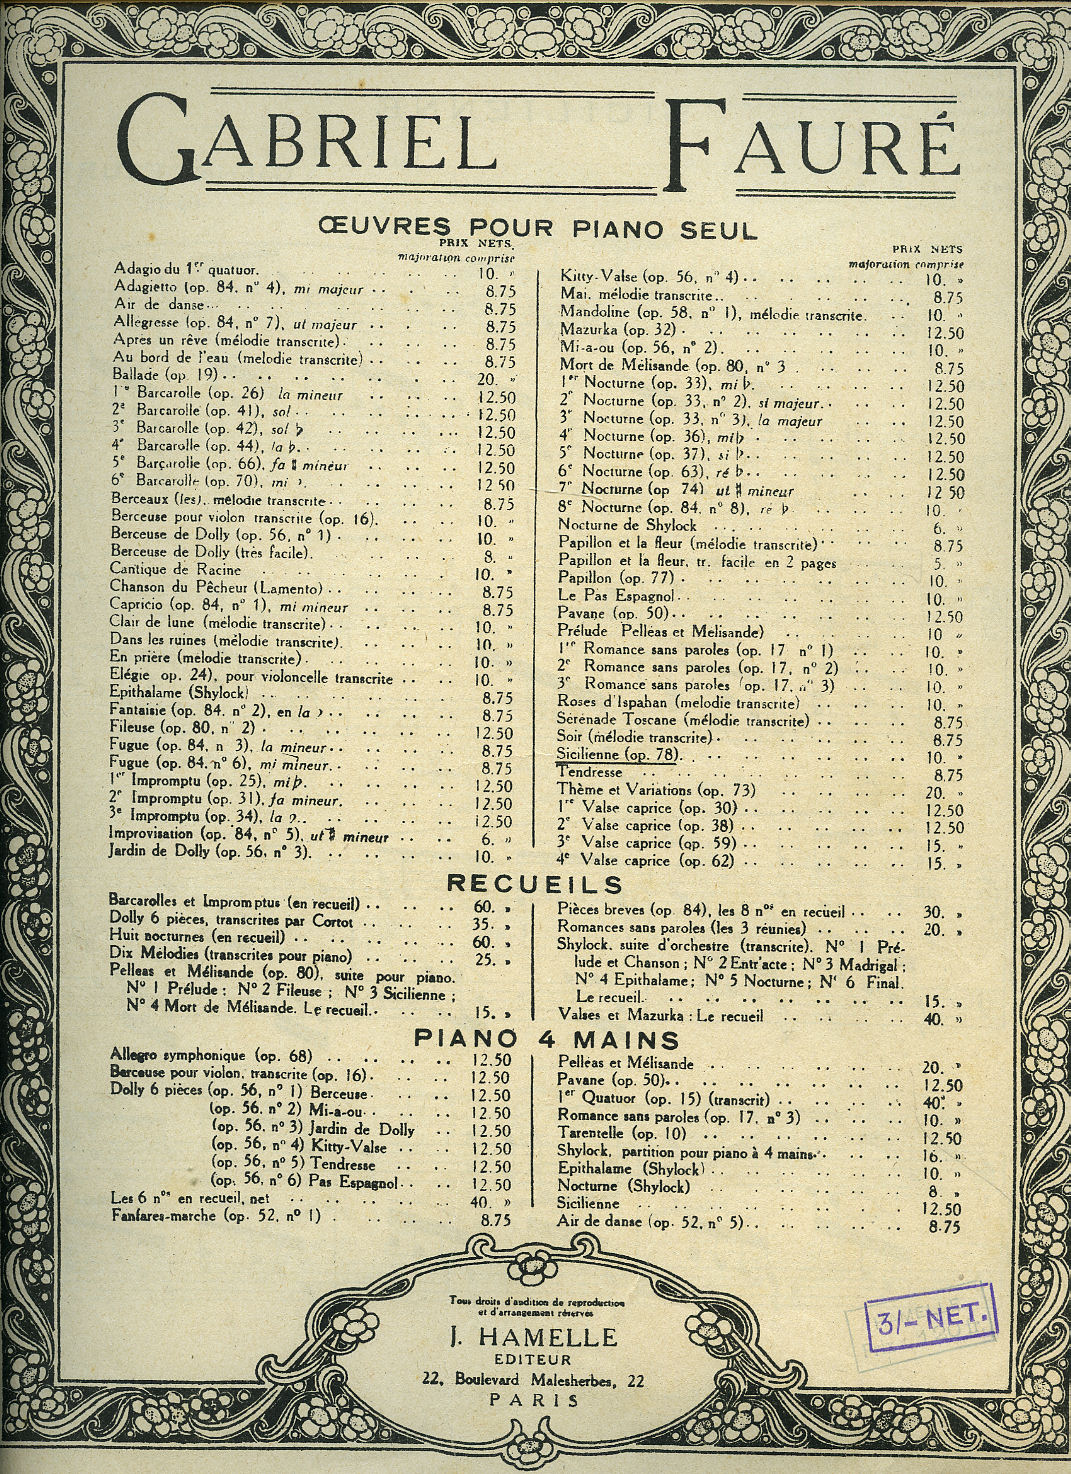 GABRIEL FAURÉ
ŒUVRES POUR PIANO SEUL
PRIX NETS.
majoration comprise
Adagio du 1er quatuor. 10. »
Adagietto (op. 84, n° 4), mi majeur 8.75
Air de danse 8.75
Allégresse (op. 84, n° 7), ut majeur 8.75
Après un rêve (mélodie transcrite) 8.75
Au bord de l'eau (melodie transcrite) 8.75
Ballade (op. 19) 20. »
1re Barcarolle (op. 26) la mineur 12.50
2e Barcarolle (op. 41), sol 12.50
3e Barcarolle (op. 42), sol ♭ 12.50
4e Barcarolle (op. 44), la ♭ 12.50
5e Barcarolle (op. 66), fa ♯ mineur 12.50
6e Barcarolle (op. 70), mi ♭ 12 50
Berceaux (les), mélodie transcrite 8.75
Berceuse pour violon transcrite (op. 16). 10. »
Berceuse de Dolly (op. 56, n° 1) 10. »
Berceuse de Dolly (très facile). 8. »
Cantique de Racine 10. »
Chanson du Pêcheur (Lamento) 8.75
Capricio (op. 84, n° 1), mi mineur 8.75
Clair de lune (mélodie transcrite) 10. »
Dans les ruines (mélodie transcrite). 10. »
En prière (mélodie transcrite) 10. »
Elégie op. 24), pour violoncelle transcrite 10. »
Epithalame (Shylock) 8.75
Fantaisie (op. 84, n° 2), en la ♭ 8.75
Fileuse (op. 80, n° 2) 12.50
Fugue (op. 84, n 3), la mineur 8.75
Fugue (op. 84, n° 6), mi mineur 8.75
1er Impromptu (op. 25), mi ♭. 12.50
2e Impromptu (op. 31), fa mineur. 12.50
3e Impromptu (op. 34), la ♭ 12.50
Improvisation (op. 84, n° 5), ut ♯ mineur 6. »
Jardin de Dolly (op. 56, n° 3). 10. »
PRIX NETS
majoration comprise
Kitty-Valse (op. 56, n° 4) 10. »
Mai, mélodie transcrite 8.75
Mandoline (op. 58, n° 1), mélodie transcrite. 10. »
Mazurka (op. 32) 12.50
Mi-a-ou (op. 56, n° 2). 10. »
Mort de Mélisande (op. 80, n° 3 8.75
1er Nocturne (op. 33), mi ♭. 12.50
2e Nocturne (op. 33, n° 2), si majeur. 12.50
3e Nocturne (op. 33, n° 3), la majeur 12.50
4e Nocturne (op. 36), mi ♭ 12.50
5e Nocturne (op. 37), si ♭ 12.50
6e Nocturne (op. 63), ré ♭ 12.50
7e Nocturne (op 74) ut ♯ mineur 12 50
8e Nocturne (op. 84, n° 8), ré ♭ 10. »
Nocturne de Shylock 6. »
Papillon et la fleur (mélodie transcrite) 8.75
Papillon et la fleur, tr. facile en 2 pages 5. »
Papillon (op. 77) 10. »
Le Pas Espagnol 10. »
Pavane (op. 50) 12.50
Prélude Pelléas et Mélisande) 10 »
1re Romance sans paroles (op. 17 n° 1) 10. »
2e Romance sans paroles (op. 17, n° 2) 10. »
3e Romance sans paroles (op. 17, n° 3) 10. »
Roses d'Ispahan (melodie transcrite) 10. »
Sérénade Toscane (mélodie transcrite) 8.75
Soir (mélodie transcrite) 8.75
Sicilienne (op. 78). 10. »
Tendresse 8.75
Thème et Variations (op. 73) 20. »
1re Valse caprice (op. 30) 12.50
2e Valse caprice (op. 38) 12.50
3e Valse caprice (op. 59) 15. »
4e Valse caprice (op. 62) 15. »
RECUEILS
Barcarolles et Impromptus (en recueil) 60. »
Dolly 6 pièces, transcrites par Cortot 35. »
Huit nocturnes (en recueil) 60. »
Dix Mélodies (transcrites pour piano) 25. »
Pelleas et Mélisande (op. 80), suite pour piano.
N° 1 Prélude ; N° 2 Fileuse ; N° 3 Sicilienne ;
N° 4 Mort de Mélisande. Le recueil. 15. »
Pièces breves (op. 84), les 8 nos en recueil 30. »
Romances sans paroles (les 3 réunies) 20. »
Shylock, suite d'orchestre (transcrite). N° 1 Pré-
lude et Chanson ; N° 2 Entr'acte ; N° 3 Madrigal ;
N° 4 Epithalame ; N° 5 Nocturne ; N° 6 Final.
Le recueil. 15. »
Valses et Mazurka : Le recueil 40. »
PIANO 4 MAINS
Allegro symphonique (op. 68) 12.50
Berceuse pour violon, transcrite (op. 16) 12.50
Dolly 6 pièces (op. 56, n° 1) Berceuse 12.50
(op. 56, n° 2) Mi-a-ou 12.50
(op. 56, n° 3) Jardin de Dolly 12.50
(op. 56, n° 4) Kitty-Valse 12.50
(op. 56, n° 5) Tendresse 12.50
(op. 56, n° 6) Pas Espagnol 12.50
Les 6 nos en recueil, net 40. »
Fanfares-marche (op. 52, n° 1) 8.75
Pelléas et Mélisande 20. »
Pavane (op. 50). 12.50
1er Quatuor (op. 15) (transcrit) 40. »
Romance sans paroles (op. 17, n° 3) 10. »
Tarentelle (op. 10) 12.50
Shylock, partition pour piano à 4 mains 16. »
Epithalame (Shylock) 10. »
Nocturne (Shylock) 8. »
Sicilienne 12.50
Air de danse (op. 52, n° 5) 8.75
Tous droits d'audition de reproduction
et d'arrangement réservés
J. HAMELLE
EDITEUR
22, Boulevard Malesherbes, 22
PARIS
3/- NET.